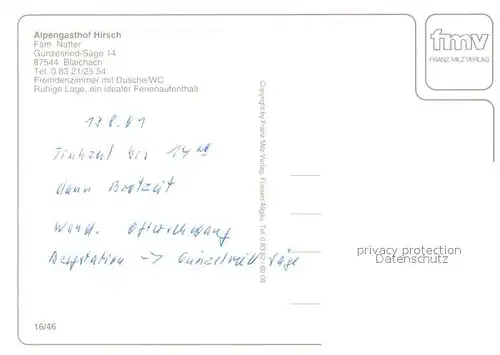 Alpengasthof Hirsch
Fam. Natter
Gunzesried-Säge 14
87544 Blaichach
Tel. 0 83 21/25 54
Fremdenzimmer mit Dusche/WC
Ruhige Lage, ein idealer Ferienaufenthalt
fmv
FRANZ MILZ VERLAG
Copyright by Franz Milz Verlag, Füssen/Allgäu, Tel. 0 83 62 /
bis 14
dann Brotzeit
Bergstation -> Säge
privacy protection
Datenschutz
16/46